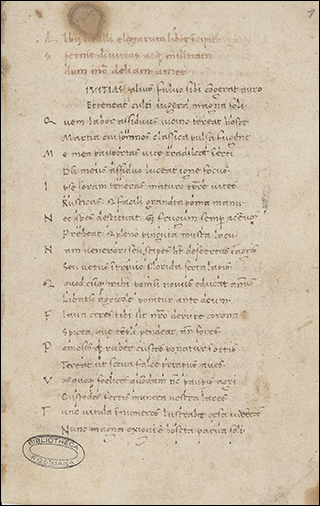 Albii tibulli elegiarum liber incipit
Spernit diuitias atq militiam
dum mo deliam amet
DIVITIAS alius fuluo sibi congerat auro
Et teneat culti iugera magna soli
Quem labor assiduus uicino terreat hoste
Martia cui somnos classica pulsa fugent
Me mea paupertas uite traducat inerti
Dum meus assiduo luceat igne focus
Ipse seram teneras maturo tpre uites
Rusticus et facili grandia poma manu
Nec spes destituat s; frugum semp aceruos
Prebeat et pleno pinguia musta lacu
Nam ueneror seu stipes ht desertus i agris
Seu uetus i triuio florida serta lapis
Et quodcuq mihi pomu nouus educat annus
Libatu agricole ponitur ante deum
Flaua ceres tibi sit nro de rure corona
Spicea que templi pendeat an fores
Pomosisq ruber custos ponatur i ortis
Terreat ut seua falce priapus aues
Vos quoq felicis quondam nc paupis agri
Custodes fertis munera uestra lares
Tunc uitula inumeros lustrabat cesa iuuecos
Nunc magna exigui e hostia parua soli
BIBLIOTHECA
ROSSIANA